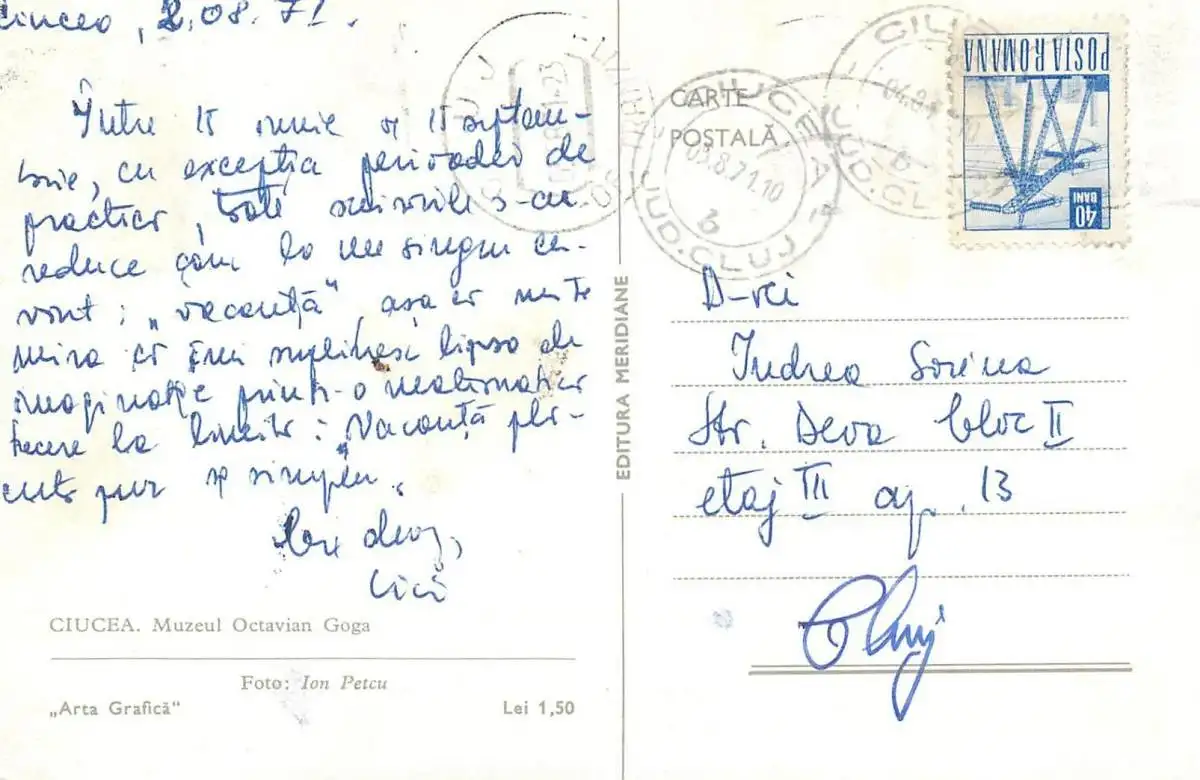 Ciucea, 2.08.71.
Între 15 iunie și 15 septem-
brie, cu excepția perioadei de
practică, toate scrisorile s-au
reduce cam la un singur cu-
vînt: „vacanță“, așa că nu te
mira că îmi suplinesc lipsa de
imaginație printr-o matematică
trecere la limită: „Vacanță plă-
cută pur și simplu.
Cici
CIUCEA. Muzeul Octavian Goga
Foto: Ion Petcu
„Arta Grafică“
Lei 1,50
EDITURA MERIDIANE
CARTE
POȘTALĂ
CIUCEA
JUD. CLUJ
.8.71.10
b
CLUJ
POSTA ROMANA
40
BANI
D-rei
Indrea Sorina
Str. Deva bloc II
etaj III ap. 13
Cluj